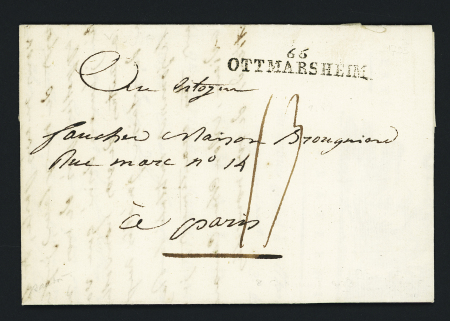 66
OTTMARSHEIM
Au Citoyen
faucher Maison Brougniard
Rue marc n° 14
13
à paris